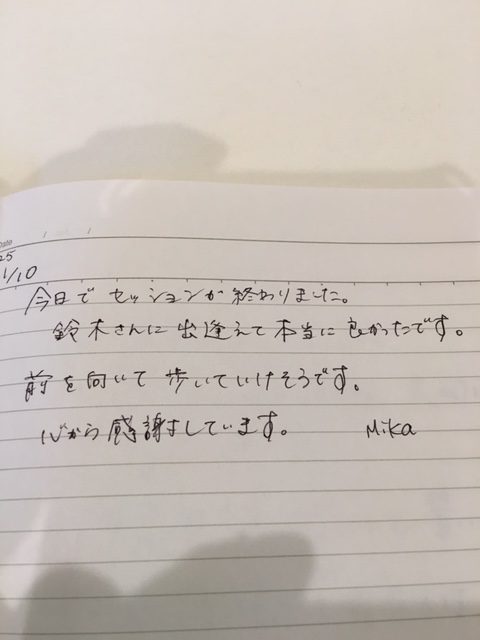 Date
25
1/10
今日で セッションが 終わりました。
鈴木さんに 出逢えて 本当に 良かったです。
前を向いて 歩いていけそうです。
心から感謝しています。 Mika